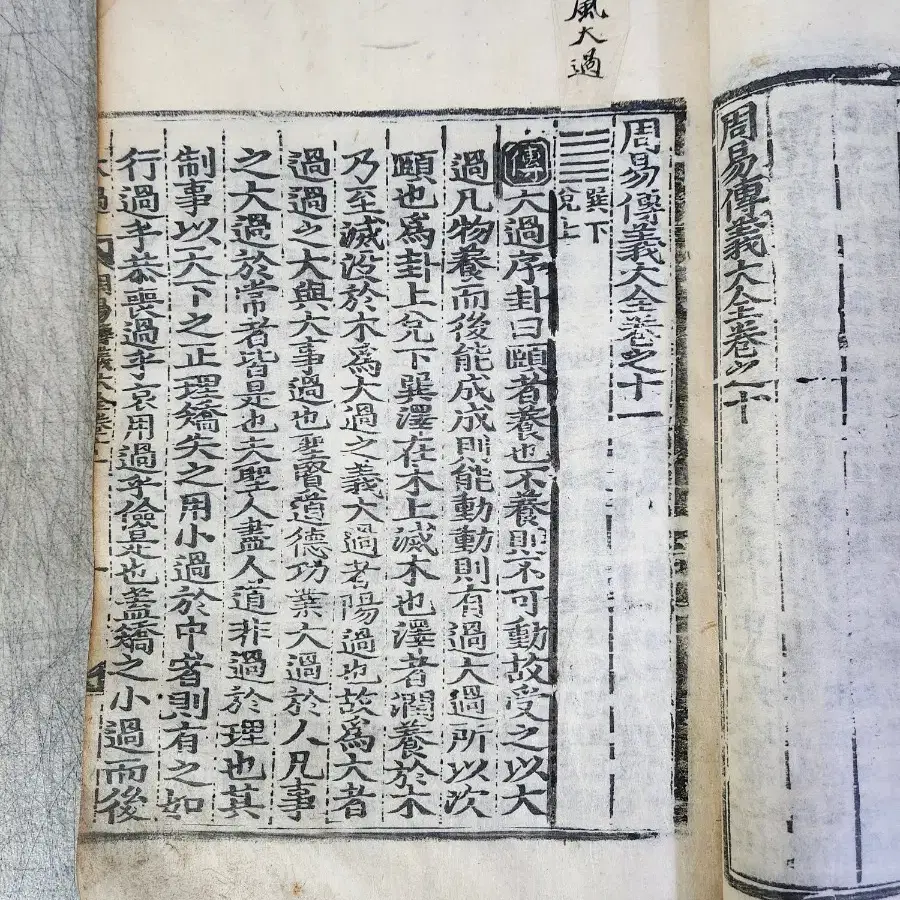 周易傳義大全卷之十
周易傳義大全卷之十一
風大過
巽下
兌上
傳大過序卦曰頤者養也不養則不可動故受之以大
過凡物養而後能成成則能動動則有過大過所以次
頤也爲卦上兌下巽澤在木上滅木也澤者潤養於木
乃至滅沒於木爲大過之義大過者陽過也故爲大者
過過之大與大事過也聖賢道德功業大過於人凡事
之大過於常者皆是也夫聖人盡人道非過於理也其
制事以天下之正理矯失之用小過於中者則有之如
行過乎恭喪過乎哀用過乎儉是也蓋矯之小過而後